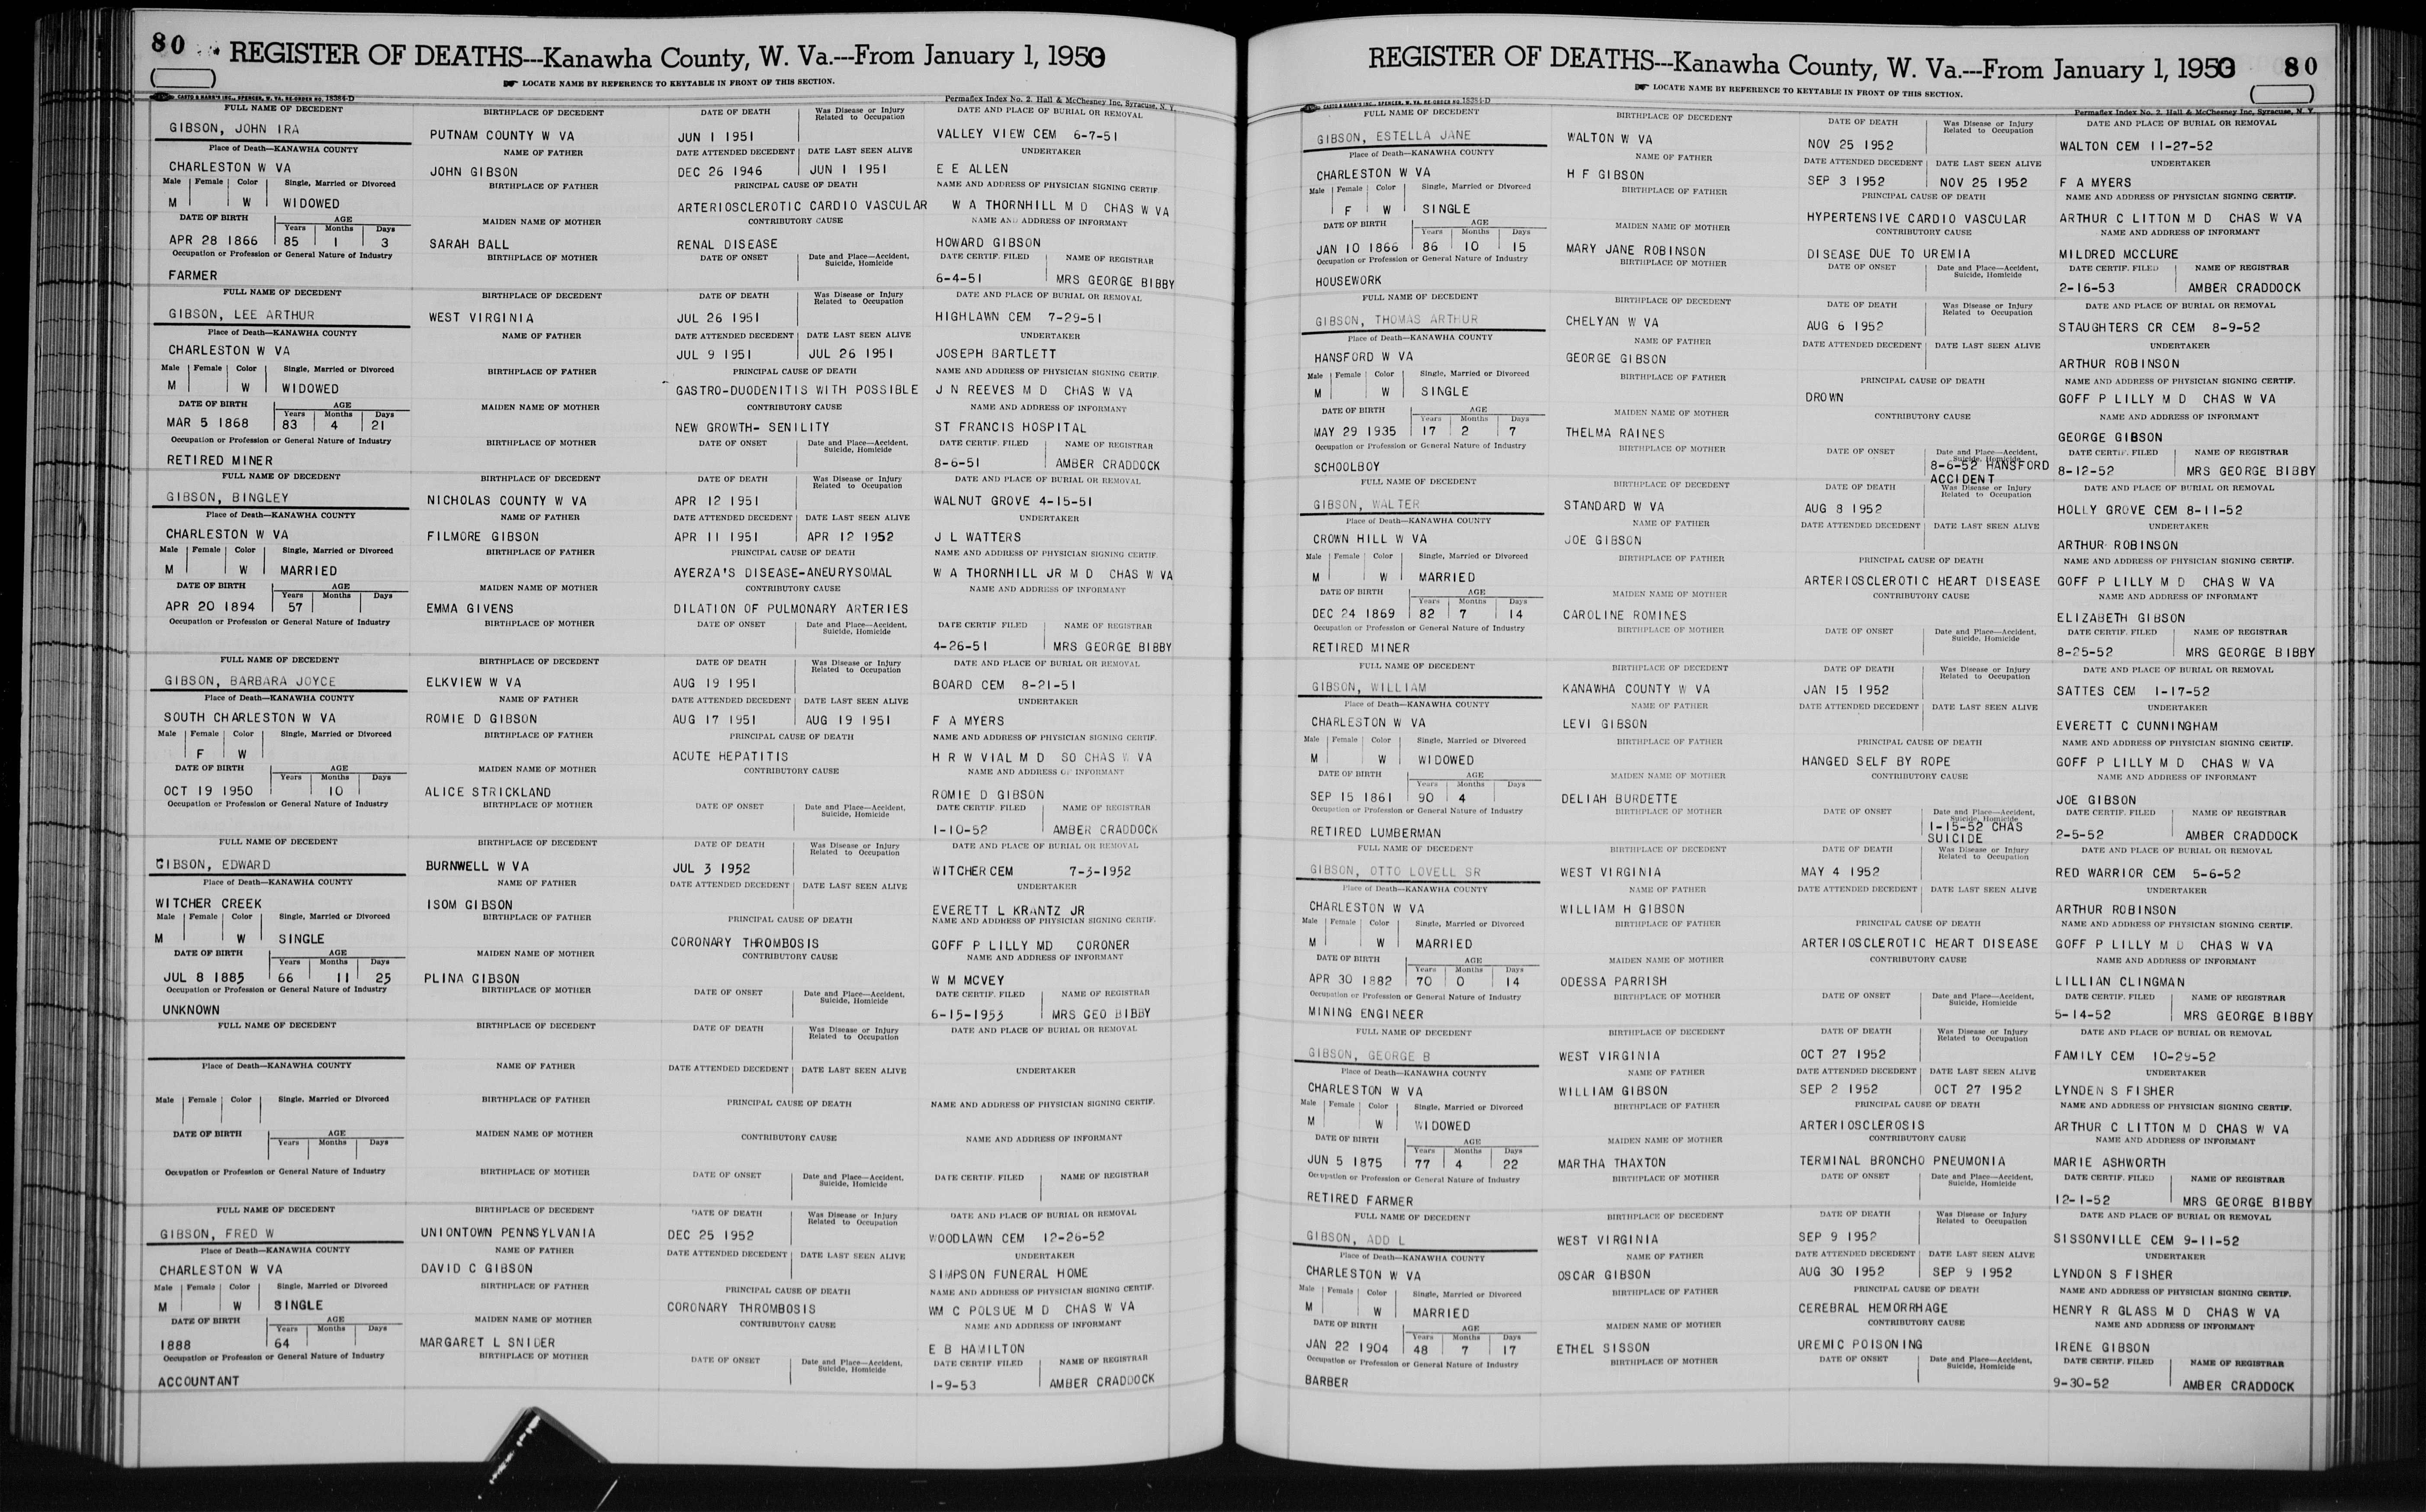 80 REGISTER OF DEATHS---Kanawha County, W. Va.---From January 1, 1950
LOCATE NAME BY REFERENCE TO KEYTABLE IN FRONT OF THIS SECTION.
CASTO & HARRIS INC., SPENCER, W. VA. RE-ORDER NO. 18384-D Permaflex Index No. 2, Hall & McChesney Inc, Syracuse, N. Y.
FULL NAME OF DECEDENT BIRTHPLACE OF DECEDENT DATE OF DEATH Was Disease or Injury Related to Occupation DATE AND PLACE OF BURIAL OR REMOVAL
GIBSON, JOHN IRA PUTNAM COUNTY W VA JUN 1 1951 VALLEY VIEW CEM 6-7-51
Place of Death—KANAWHA COUNTY NAME OF FATHER DATE ATTENDED DECEDENT DATE LAST SEEN ALIVE UNDERTAKER
CHARLESTON W VA JOHN GIBSON DEC 26 1946 JUN 1 1951 E E ALLEN
Male Female Color Single, Married or Divorced BIRTHPLACE OF FATHER PRINCIPAL CAUSE OF DEATH NAME AND ADDRESS OF PHYSICIAN SIGNING CERTIF.
M W WIDOWED ARTERIOSCLEROTIC CARDIO VASCULAR W A THORNHILL M D CHAS W VA
DATE OF BIRTH AGE Years Months Days MAIDEN NAME OF MOTHER CONTRIBUTORY CAUSE NAME AND ADDRESS OF INFORMANT
APR 28 1866 85 1 3 SARAH BALL RENAL DISEASE HOWARD GIBSON
Occupation or Profession or General Nature of Industry BIRTHPLACE OF MOTHER DATE OF ONSET Date and Place—Accident, Suicide, Homicide DATE CERTIF. FILED NAME OF REGISTRAR
FARMER 6-4-51 MRS GEORGE BIBBY
FULL NAME OF DECEDENT BIRTHPLACE OF DECEDENT DATE OF DEATH Was Disease or Injury Related to Occupation DATE AND PLACE OF BURIAL OR REMOVAL
GIBSON, LEE ARTHUR WEST VIRGINIA JUL 26 1951 HIGHLAWN CEM 7-29-51
Place of Death—KANAWHA COUNTY NAME OF FATHER DATE ATTENDED DECEDENT DATE LAST SEEN ALIVE UNDERTAKER
CHARLESTON W VA JUL 9 1951 JUL 26 1951 JOSEPH BARTLETT
Male Female Color Single, Married or Divorced BIRTHPLACE OF FATHER PRINCIPAL CAUSE OF DEATH NAME AND ADDRESS OF PHYSICIAN SIGNING CERTIF.
M W WIDOWED GASTRO-DUODENITIS WITH POSSIBLE J N REEVES M D CHAS W VA
DATE OF BIRTH AGE Years Months Days MAIDEN NAME OF MOTHER CONTRIBUTORY CAUSE NAME AND ADDRESS OF INFORMANT
MAR 5 1868 83 4 21 NEW GROWTH- SENILITY ST FRANCIS HOSPITAL
Occupation or Profession or General Nature of Industry BIRTHPLACE OF MOTHER DATE OF ONSET Date and Place—Accident, Suicide, Homicide DATE CERTIF. FILED NAME OF REGISTRAR
RETIRED MINER 8-6-51 AMBER CRADDOCK
FULL NAME OF DECEDENT BIRTHPLACE OF DECEDENT DATE OF DEATH Was Disease or Injury Related to Occupation DATE AND PLACE OF BURIAL OR REMOVAL
GIBSON, BINGLEY NICHOLAS COUNTY W VA APR 12 1951 WALNUT GROVE 4-15-51
Place of Death—KANAWHA COUNTY NAME OF FATHER DATE ATTENDED DECEDENT DATE LAST SEEN ALIVE UNDERTAKER
CHARLESTON W VA FILMORE GIBSON APR 11 1951 APR 12 1952 J L WATTERS
Male Female Color Single, Married or Divorced BIRTHPLACE OF FATHER PRINCIPAL CAUSE OF DEATH NAME AND ADDRESS OF PHYSICIAN SIGNING CERTIF.
M W MARRIED AYERZA'S DISEASE-ANEURYSOMAL W A THORNHILL JR M D CHAS W VA
DATE OF BIRTH AGE Years Months Days MAIDEN NAME OF MOTHER CONTRIBUTORY CAUSE NAME AND ADDRESS OF INFORMANT
APR 20 1894 57 EMMA GIVENS DILATION OF PULMONARY ARTERIES
Occupation or Profession or General Nature of Industry BIRTHPLACE OF MOTHER DATE OF ONSET Date and Place—Accident, Suicide, Homicide DATE CERTIF FILED NAME OF REGISTRAR
4-26-51 MRS GEORGE BIBBY
FULL NAME OF DECEDENT BIRTHPLACE OF DECEDENT DATE OF DEATH Was Disease or Injury Related to Occupation DATE AND PLACE OF BURIAL OR REMOVAL
GIBSON, BARBARA JOYCE ELKVIEW W VA AUG 19 1951 BOARD CEM 8-21-51
Place of Death—KANAWHA COUNTY NAME OF FATHER DATE ATTENDED DECEDENT DATE LAST SEEN ALIVE UNDERTAKER
SOUTH CHARLESTON W VA ROMIE D GIBSON AUG 17 1951 AUG 19 1951 F A MYERS
Male Female Color Single, Married or Divorced BIRTHPLACE OF FATHER PRINCIPAL CAUSE OF DEATH NAME AND ADDRESS OF PHYSICIAN SIGNING CERTIF.
F W ACUTE HEPATITIS H R W VIAL M D SO CHAS W VA
DATE OF BIRTH AGE Years Months Days MAIDEN NAME OF MOTHER CONTRIBUTORY CAUSE NAME AND ADDRESS OF INFORMANT
OCT 19 1950 10 ALICE STRICKLAND ROMIE D GIBSON
Occupation or Profession or General Nature of Industry BIRTHPLACE OF MOTHER DATE OF ONSET Date and Place—Accident, Suicide, Homicide DATE CERTIF. FILED NAME OF REGISTRAR
1-10-52 AMBER CRADDOCK
FULL NAME OF DECEDENT BIRTHPLACE OF DECEDENT DATE OF DEATH Was Disease or Injury Related to Occupation DATE AND PLACE OF BURIAL OR REMOVAL
GIBSON, EDWARD BURNWELL W VA JUL 3 1952 WITCHER CEM 7-3-1952
Place of Death—KANAWHA COUNTY NAME OF FATHER DATE ATTENDED DECEDENT DATE LAST SEEN ALIVE UNDERTAKER
WITCHER CREEK ISOM GIBSON EVERETT L KRANTZ JR
Male Female Color Single, Married or Divorced BIRTHPLACE OF FATHER PRINCIPAL CAUSE OF DEATH NAME AND ADDRESS OF PHYSICIAN SIGNING CERTIF.
M W SINGLE CORONARY THROMBOSIS GOFF P LILLY MD CORONER
DATE OF BIRTH AGE Years Months Days MAIDEN NAME OF MOTHER CONTRIBUTORY CAUSE NAME AND ADDRESS OF INFORMANT
JUL 8 1885 66 11 25 PLINA GIBSON W M MCVEY
Occupation or Profession or General Nature of Industry BIRTHPLACE OF MOTHER DATE OF ONSET Date and Place—Accident, Suicide, Homicide DATE CERTIF. FILED NAME OF REGISTRAR
UNKNOWN 6-15-1953 MRS GEO BIBBY
FULL NAME OF DECEDENT BIRTHPLACE OF DECEDENT DATE OF DEATH Was Disease or Injury Related to Occupation DATE AND PLACE OF BURIAL OR REMOVAL
Place of Death—KANAWHA COUNTY NAME OF FATHER DATE ATTENDED DECEDENT DATE LAST SEEN ALIVE UNDERTAKER
Male Female Color Single, Married or Divorced BIRTHPLACE OF FATHER PRINCIPAL CAUSE OF DEATH NAME AND ADDRESS OF PHYSICIAN SIGNING CERTIF.
DATE OF BIRTH AGE Years Months Days MAIDEN NAME OF MOTHER CONTRIBUTORY CAUSE NAME AND ADDRESS OF INFORMANT
Occupation or Profession or General Nature of Industry BIRTHPLACE OF MOTHER DATE OF ONSET Date and Place—Accident, Suicide, Homicide DATE CERTIF. FILED NAME OF REGISTRAR
FULL NAME OF DECEDENT BIRTHPLACE OF DECEDENT DATE OF DEATH Was Disease or Injury Related to Occupation DATE AND PLACE OF BURIAL OR REMOVAL
GIBSON, FRED W UNIONTOWN PENNSYLVANIA DEC 25 1952 WOODLAWN CEM 12-26-52
Place of Death—KANAWHA COUNTY NAME OF FATHER DATE ATTENDED DECEDENT DATE LAST SEEN ALIVE UNDERTAKER
CHARLESTON W VA DAVID C GIBSON SIMPSON FUNERAL HOME
Male Female Color Single, Married or Divorced BIRTHPLACE OF FATHER PRINCIPAL CAUSE OF DEATH NAME AND ADDRESS OF PHYSICIAN SIGNING CERTIF.
M W SINGLE CORONARY THROMBOSIS WM C POLSUE M D CHAS W VA
DATE OF BIRTH AGE Years Months Days MAIDEN NAME OF MOTHER CONTRIBUTORY CAUSE NAME AND ADDRESS OF INFORMANT
1888 64 MARGARET L SNIDER E B HAMILTON
Occupation or Profession or General Nature of Industry BIRTHPLACE OF MOTHER DATE OF ONSET Date and Place—Accident, Suicide, Homicide DATE CERTIF. FILED NAME OF REGISTRAR
ACCOUNTANT 1-9-53 AMBER CRADDOCK
REGISTER OF DEATHS---Kanawha County, W. Va.---From January 1, 1950 80
LOCATE NAME BY REFERENCE TO KEYTABLE IN FRONT OF THIS SECTION.
CASTO & HARRIS INC., SPENCER, W. VA. RE-ORDER NO. 18384-D Permaflex Index No. 2, Hall & McChesney Inc, Syracuse, N. Y.
FULL NAME OF DECEDENT BIRTHPLACE OF DECEDENT DATE OF DEATH Was Disease or Injury Related to Occupation DATE AND PLACE OF BURIAL OR REMOVAL
GIBSON, ESTELLA JANE WALTON W VA NOV 25 1952 WALTON CEM 11-27-52
Place of Death—KANAWHA COUNTY NAME OF FATHER DATE ATTENDED DECEDENT DATE LAST SEEN ALIVE UNDERTAKER
CHARLESTON W VA H F GIBSON SEP 3 1952 NOV 25 1952 F A MYERS
Male Female Color Single, Married or Divorced BIRTHPLACE OF FATHER PRINCIPAL CAUSE OF DEATH NAME AND ADDRESS OF PHYSICIAN SIGNING CERTIF.
F W SINGLE HYPERTENSIVE CARDIO VASCULAR ARTHUR C LITTON M D CHAS W VA
DATE OF BIRTH AGE Years Months Days MAIDEN NAME OF MOTHER CONTRIBUTORY CAUSE NAME AND ADDRESS OF INFORMANT
JAN 10 1866 86 10 15 MARY JANE ROBINSON DISEASE DUE TO UREMIA MILDRED MCCLURE
Occupation or Profession or General Nature of Industry BIRTHPLACE OF MOTHER DATE OF ONSET Date and Place—Accident, Suicide, Homicide DATE CERTIF. FILED NAME OF REGISTRAR
HOUSEWORK 2-16-53 AMBER CRADDOCK
FULL NAME OF DECEDENT BIRTHPLACE OF DECEDENT DATE OF DEATH Was Disease or Injury Related to Occupation DATE AND PLACE OF BURIAL OR REMOVAL
GIBSON, THOMAS ARTHUR CHELYAN W VA AUG 6 1952 STAUGHTERS CR CEM 8-9-52
Place of Death—KANAWHA COUNTY NAME OF FATHER DATE ATTENDED DECEDENT DATE LAST SEEN ALIVE UNDERTAKER
HANSFORD W VA GEORGE GIBSON ARTHUR ROBINSON
Male Female Color Single, Married or Divorced BIRTHPLACE OF FATHER PRINCIPAL CAUSE OF DEATH NAME AND ADDRESS OF PHYSICIAN SIGNING CERTIF.
M W SINGLE DROWN GOFF P LILLY M D CHAS W VA
DATE OF BIRTH AGE Years Months Days MAIDEN NAME OF MOTHER CONTRIBUTORY CAUSE NAME AND ADDRESS OF INFORMANT
MAY 29 1935 17 2 7 THELMA RAINES GEORGE GIBSON
Occupation or Profession or General Nature of Industry BIRTHPLACE OF MOTHER DATE OF ONSET Date and Place—Accident, Suicide, Homicide DATE CERTIF. FILED NAME OF REGISTRAR
SCHOOLBOY 8-6-52 HANSFORD ACCIDENT 8-12-52 MRS GEORGE BIBBY
FULL NAME OF DECEDENT BIRTHPLACE OF DECEDENT DATE OF DEATH Was Disease or Injury Related to Occupation DATE AND PLACE OF BURIAL OR REMOVAL
GIBSON, WALTER STANDARD W VA AUG 8 1952 HOLLY GROVE CEM 8-11-52
Place of Death—KANAWHA COUNTY NAME OF FATHER DATE ATTENDED DECEDENT DATE LAST SEEN ALIVE UNDERTAKER
CROWN HILL W VA JOE GIBSON ARTHUR ROBINSON
Male Female Color Single, Married or Divorced BIRTHPLACE OF FATHER PRINCIPAL CAUSE OF DEATH NAME AND ADDRESS OF PHYSICIAN SIGNING CERTIF.
M W MARRIED ARTERIOSCLEROTIC HEART DISEASE GOFF P LILLY M D CHAS W VA
DATE OF BIRTH AGE Years Months Days MAIDEN NAME OF MOTHER CONTRIBUTORY CAUSE NAME AND ADDRESS OF INFORMANT
DEC 24 1869 82 7 14 CAROLINE ROMINES ELIZABETH GIBSON
Occupation or Profession or General Nature of Industry BIRTHPLACE OF MOTHER DATE OF ONSET Date and Place—Accident, Suicide, Homicide DATE CERTIF. FILED NAME OF REGISTRAR
RETIRED MINER 8-25-52 MRS GEORGE BIBBY
FULL NAME OF DECEDENT BIRTHPLACE OF DECEDENT DATE OF DEATH Was Disease or Injury Related to Occupation DATE AND PLACE OF BURIAL OR REMOVAL
GIBSON, WILLIAM KANAWHA COUNTY W VA JAN 15 1952 SATTES CEM 1-17-52
Place of Death—KANAWHA COUNTY NAME OF FATHER DATE ATTENDED DECEDENT DATE LAST SEEN ALIVE UNDERTAKER
CHARLESTON W VA LEVI GIBSON EVERETT C CUNNINGHAM
Male Female Color Single, Married or Divorced BIRTHPLACE OF FATHER PRINCIPAL CAUSE OF DEATH NAME AND ADDRESS OF PHYSICIAN SIGNING CERTIF.
M W WIDOWED HANGED SELF BY ROPE GOFF P LILLY M D CHAS W VA
DATE OF BIRTH AGE Years Months Days MAIDEN NAME OF MOTHER CONTRIBUTORY CAUSE NAME AND ADDRESS OF INFORMANT
SEP 15 1861 90 4 DELIAH BURDETTE JOE GIBSON
Occupation or Profession or General Nature of Industry BIRTHPLACE OF MOTHER DATE OF ONSET Date and Place—Accident, Suicide, Homicide DATE CERTIF. FILED NAME OF REGISTRAR
RETIRED LUMBERMAN 1-15-52 CHAS SUICIDE 2-5-52 AMBER CRADDOCK
FULL NAME OF DECEDENT BIRTHPLACE OF DECEDENT DATE OF DEATH Was Disease or Injury Related to Occupation DATE AND PLACE OF BURIAL OR REMOVAL
GIBSON, OTTO LOVELL SR WEST VIRGINIA MAY 4 1952 RED WARRIOR CEM 5-6-52
Place of Death—KANAWHA COUNTY NAME OF FATHER DATE ATTENDED DECEDENT DATE LAST SEEN ALIVE UNDERTAKER
CHARLESTON W VA WILLIAM H GIBSON ARTHUR ROBINSON
Male Female Color Single, Married or Divorced BIRTHPLACE OF FATHER PRINCIPAL CAUSE OF DEATH NAME AND ADDRESS OF PHYSICIAN SIGNING CERTIF.
M W MARRIED ARTERIOSCLEROTIC HEART DISEASE GOFF P LILLY M D CHAS W VA
DATE OF BIRTH AGE Years Months Days MAIDEN NAME OF MOTHER CONTRIBUTORY CAUSE NAME AND ADDRESS OF INFORMANT
APR 30 1882 70 0 14 ODESSA PARRISH LILLIAN CLINGMAN
Occupation or Profession or General Nature of Industry BIRTHPLACE OF MOTHER DATE OF ONSET Date and Place—Accident, Suicide, Homicide DATE CERTIF. FILED NAME OF REGISTRAR
MINING ENGINEER 5-14-52 MRS GEORGE BIBBY
FULL NAME OF DECEDENT BIRTHPLACE OF DECEDENT DATE OF DEATH Was Disease or Injury Related to Occupation DATE AND PLACE OF BURIAL OR REMOVAL
GIBSON, GEORGE B WEST VIRGINIA OCT 27 1952 FAMILY CEM 10-29-52
Place of Death—KANAWHA COUNTY NAME OF FATHER DATE ATTENDED DECEDENT DATE LAST SEEN ALIVE UNDERTAKER
CHARLESTON W VA WILLIAM GIBSON SEP 2 1952 OCT 27 1952 LYNDEN S FISHER
Male Female Color Single, Married or Divorced BIRTHPLACE OF FATHER PRINCIPAL CAUSE OF DEATH NAME AND ADDRESS OF PHYSICIAN SIGNING CERTIF.
M W WIDOWED ARTERIOSCLEROSIS ARTHUR C LITTON M D CHAS W VA
DATE OF BIRTH AGE Years Months Days MAIDEN NAME OF MOTHER CONTRIBUTORY CAUSE NAME AND ADDRESS OF INFORMANT
JUN 5 1875 77 4 22 MARTHA THAXTON TERMINAL BRONCHO PNEUMONIA MARIE ASHWORTH
Occupation or Profession or General Nature of Industry BIRTHPLACE OF MOTHER DATE OF ONSET Date and Place—Accident, Suicide, Homicide DATE CERTIF. FILED NAME OF REGISTRAR
RETIRED FARMER 12-1-52 MRS GEORGE BIBBY
FULL NAME OF DECEDENT BIRTHPLACE OF DECEDENT DATE OF DEATH Was Disease or Injury Related to Occupation DATE AND PLACE OF BURIAL OR REMOVAL
GIBSON, ADD L WEST VIRGINIA SEP 9 1952 SISSONVILLE CEM 9-11-52
Place of Death—KANAWHA COUNTY NAME OF FATHER DATE ATTENDED DECEDENT DATE LAST SEEN ALIVE UNDERTAKER
CHARLESTON W VA OSCAR GIBSON AUG 30 1952 SEP 9 1952 LYNDON S FISHER
Male Female Color Single, Married or Divorced BIRTHPLACE OF FATHER PRINCIPAL CAUSE OF DEATH NAME AND ADDRESS OF PHYSICIAN SIGNING CERTIF.
M W MARRIED CEREBRAL HEMORRHAGE HENRY R GLASS M D CHAS W VA
DATE OF BIRTH AGE Years Months Days MAIDEN NAME OF MOTHER CONTRIBUTORY CAUSE NAME AND ADDRESS OF INFORMANT
JAN 22 1904 48 7 17 ETHEL SISSON UREMIC POISONING IRENE GIBSON
Occupation or Profession or General Nature of Industry BIRTHPLACE OF MOTHER DATE OF ONSET Date and Place—Accident, Suicide, Homicide DATE CERTIF. FILED NAME OF REGISTRAR
BARBER 9-30-52 AMBER CRADDOCK